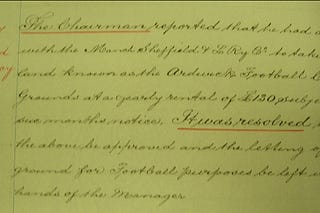 The Chairman reported that he had
with the Manc. Sheffield & L. Ry Co. to take
land known as the Ardwick Football
Grounds at a yearly rental of £120
six months notice. It was resolved
the above be approved and the letting
ground for Football purposes be left
hands of the Manager